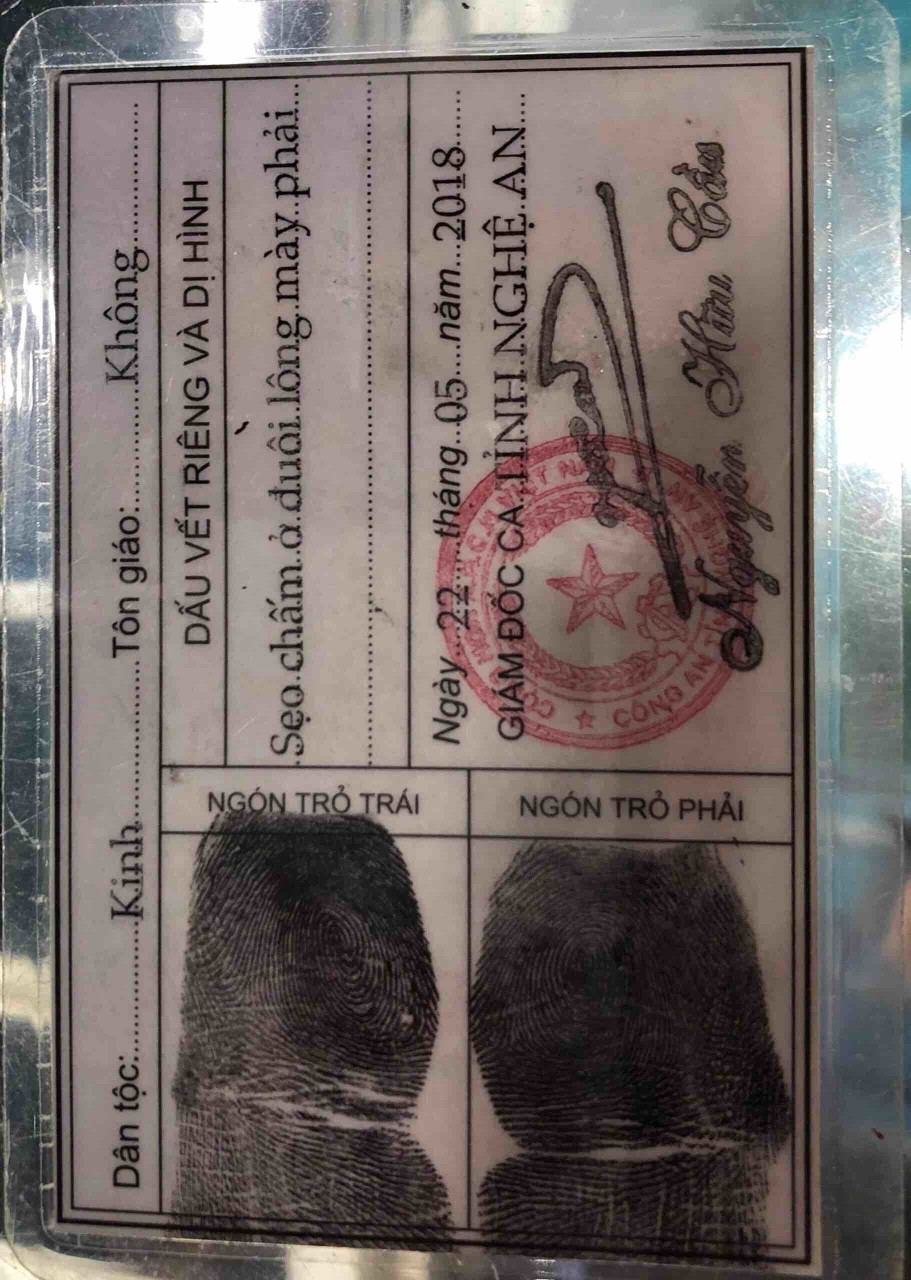 Dân tộc: Kinh Tôn giáo: Không
DẤU VẾT RIÊNG VÀ DỊ HÌNH
Sẹo chấm ở đuôi lông mày phải
Ngày 22 tháng 05 năm 2018
GIÁM ĐỐC CA TỈNH NGHỆ AN
CÔNG AN
Nguyễn Hữu Cầu
NGÓN TRỎ TRÁI
NGÓN TRỎ PHẢI